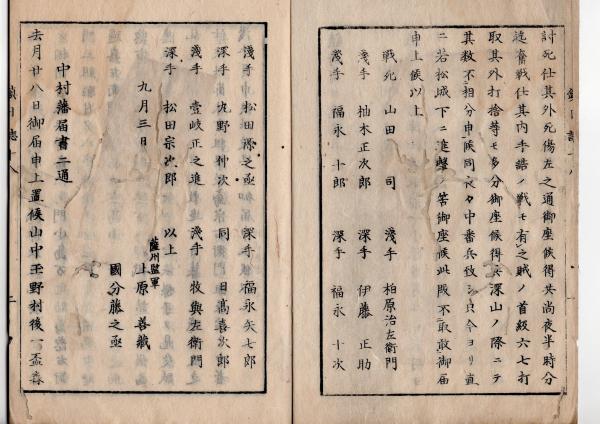 討死仕其外死傷左之通御座候得共尚夜半時分
迄奮戦仕其内手詰ノ戦モ有之賊ノ首級六七打
取其外打捨等モ多分御座候得共深山ノ際ニテ
其数不相分申候同夜々中番兵致シ只今ヨリ直
ニ若松城下ニ進撃ノ筈御座候此段不取敢御届
申上候以上
戦死 山田 司 浅手 柏原治左衛門
浅手 柚木正次郎 深手 伊藤正助
浅手 福永十郎 深手 福永十次
浅手 松田 之丞 深手 福永矢七郎
深手 野仲次 同 日高喜次郎
浅手 壹岐正之進 浅手 牧與左衛門
深手 松田宗次郎 以上
九月三日
薩州監軍
上原善藏
國分藤之丞
中村藩届書二通
去月廿八日御届申上置候山中玉野村後一盃森